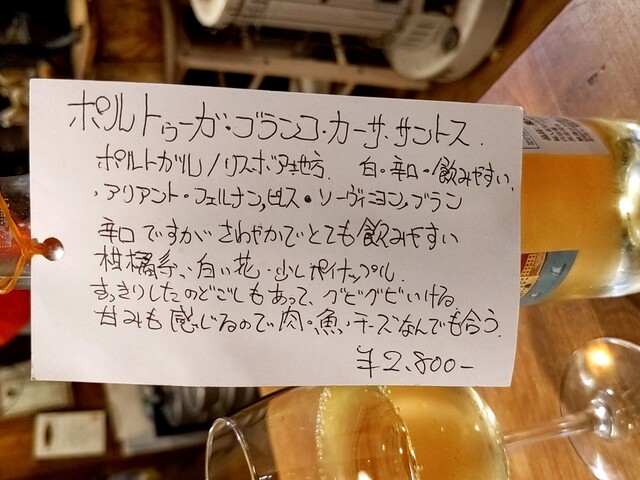 ポルトゥーガ・ブランコ・カーサ・サントス.
ポルトガル/リスボア地方. 白・辛口・飲みやすい.
・アリアント・フェルナン,ピレス・ソーヴィニヨン,ブラン
辛口ですがさわやかでとても飲みやすい
柑橘系、白い花・少しパイナップル.
すっきりしたのどごしもあって、グビグビいける
甘みも感じるので肉・魚・チーズなんでも合う.
¥2.800-